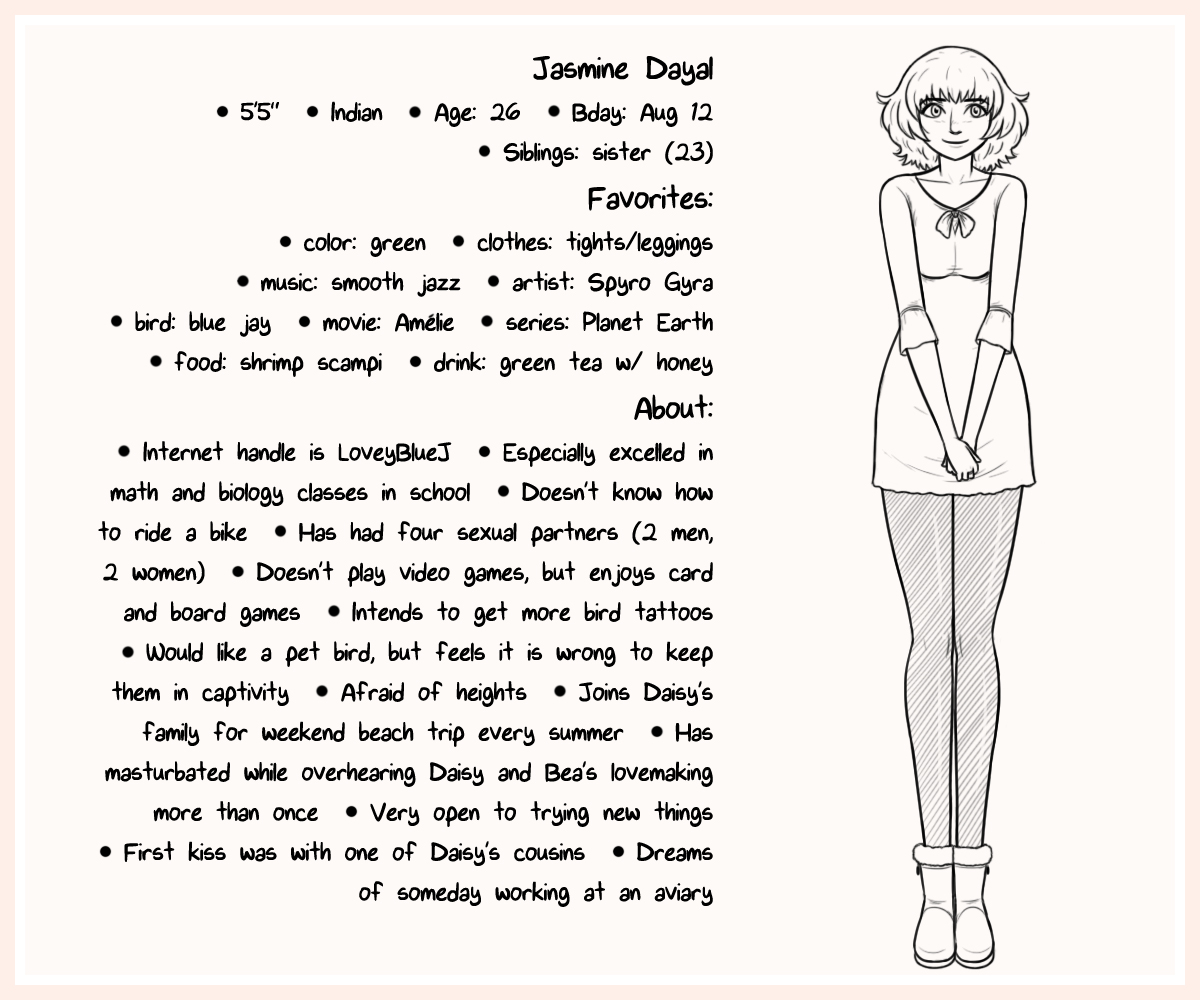 Jasmine Dayal
• 5'5" • Indian • Age: 26 • Bday: Aug 12
• Siblings: sister (23)
Favorites:
• color: green • clothes: tights/leggings
• music: smooth jazz • artist: Spyro Gyra
• bird: blue jay • movie: Amélie • series: Planet Earth
• food: shrimp scampi • drink: green tea w/ honey
About:
• Internet handle is LoveyBlueJ • Especially excelled in
math and biology classes in school • Doesn't know how
to ride a bike • Has had four sexual partners (2 men,
2 women) • Doesn't play video games, but enjoys card
and board games • Intends to get more bird tattoos
• Would like a pet bird, but feels it is wrong to keep
them in captivity • Afraid of heights • Joins Daisy's
family for weekend beach trip every summer • Has
masturbated while overhearing Daisy and Bea's lovemaking
more than once • Very open to trying new things
• First kiss was with one of Daisy's cousins • Dreams
of someday working at an aviary